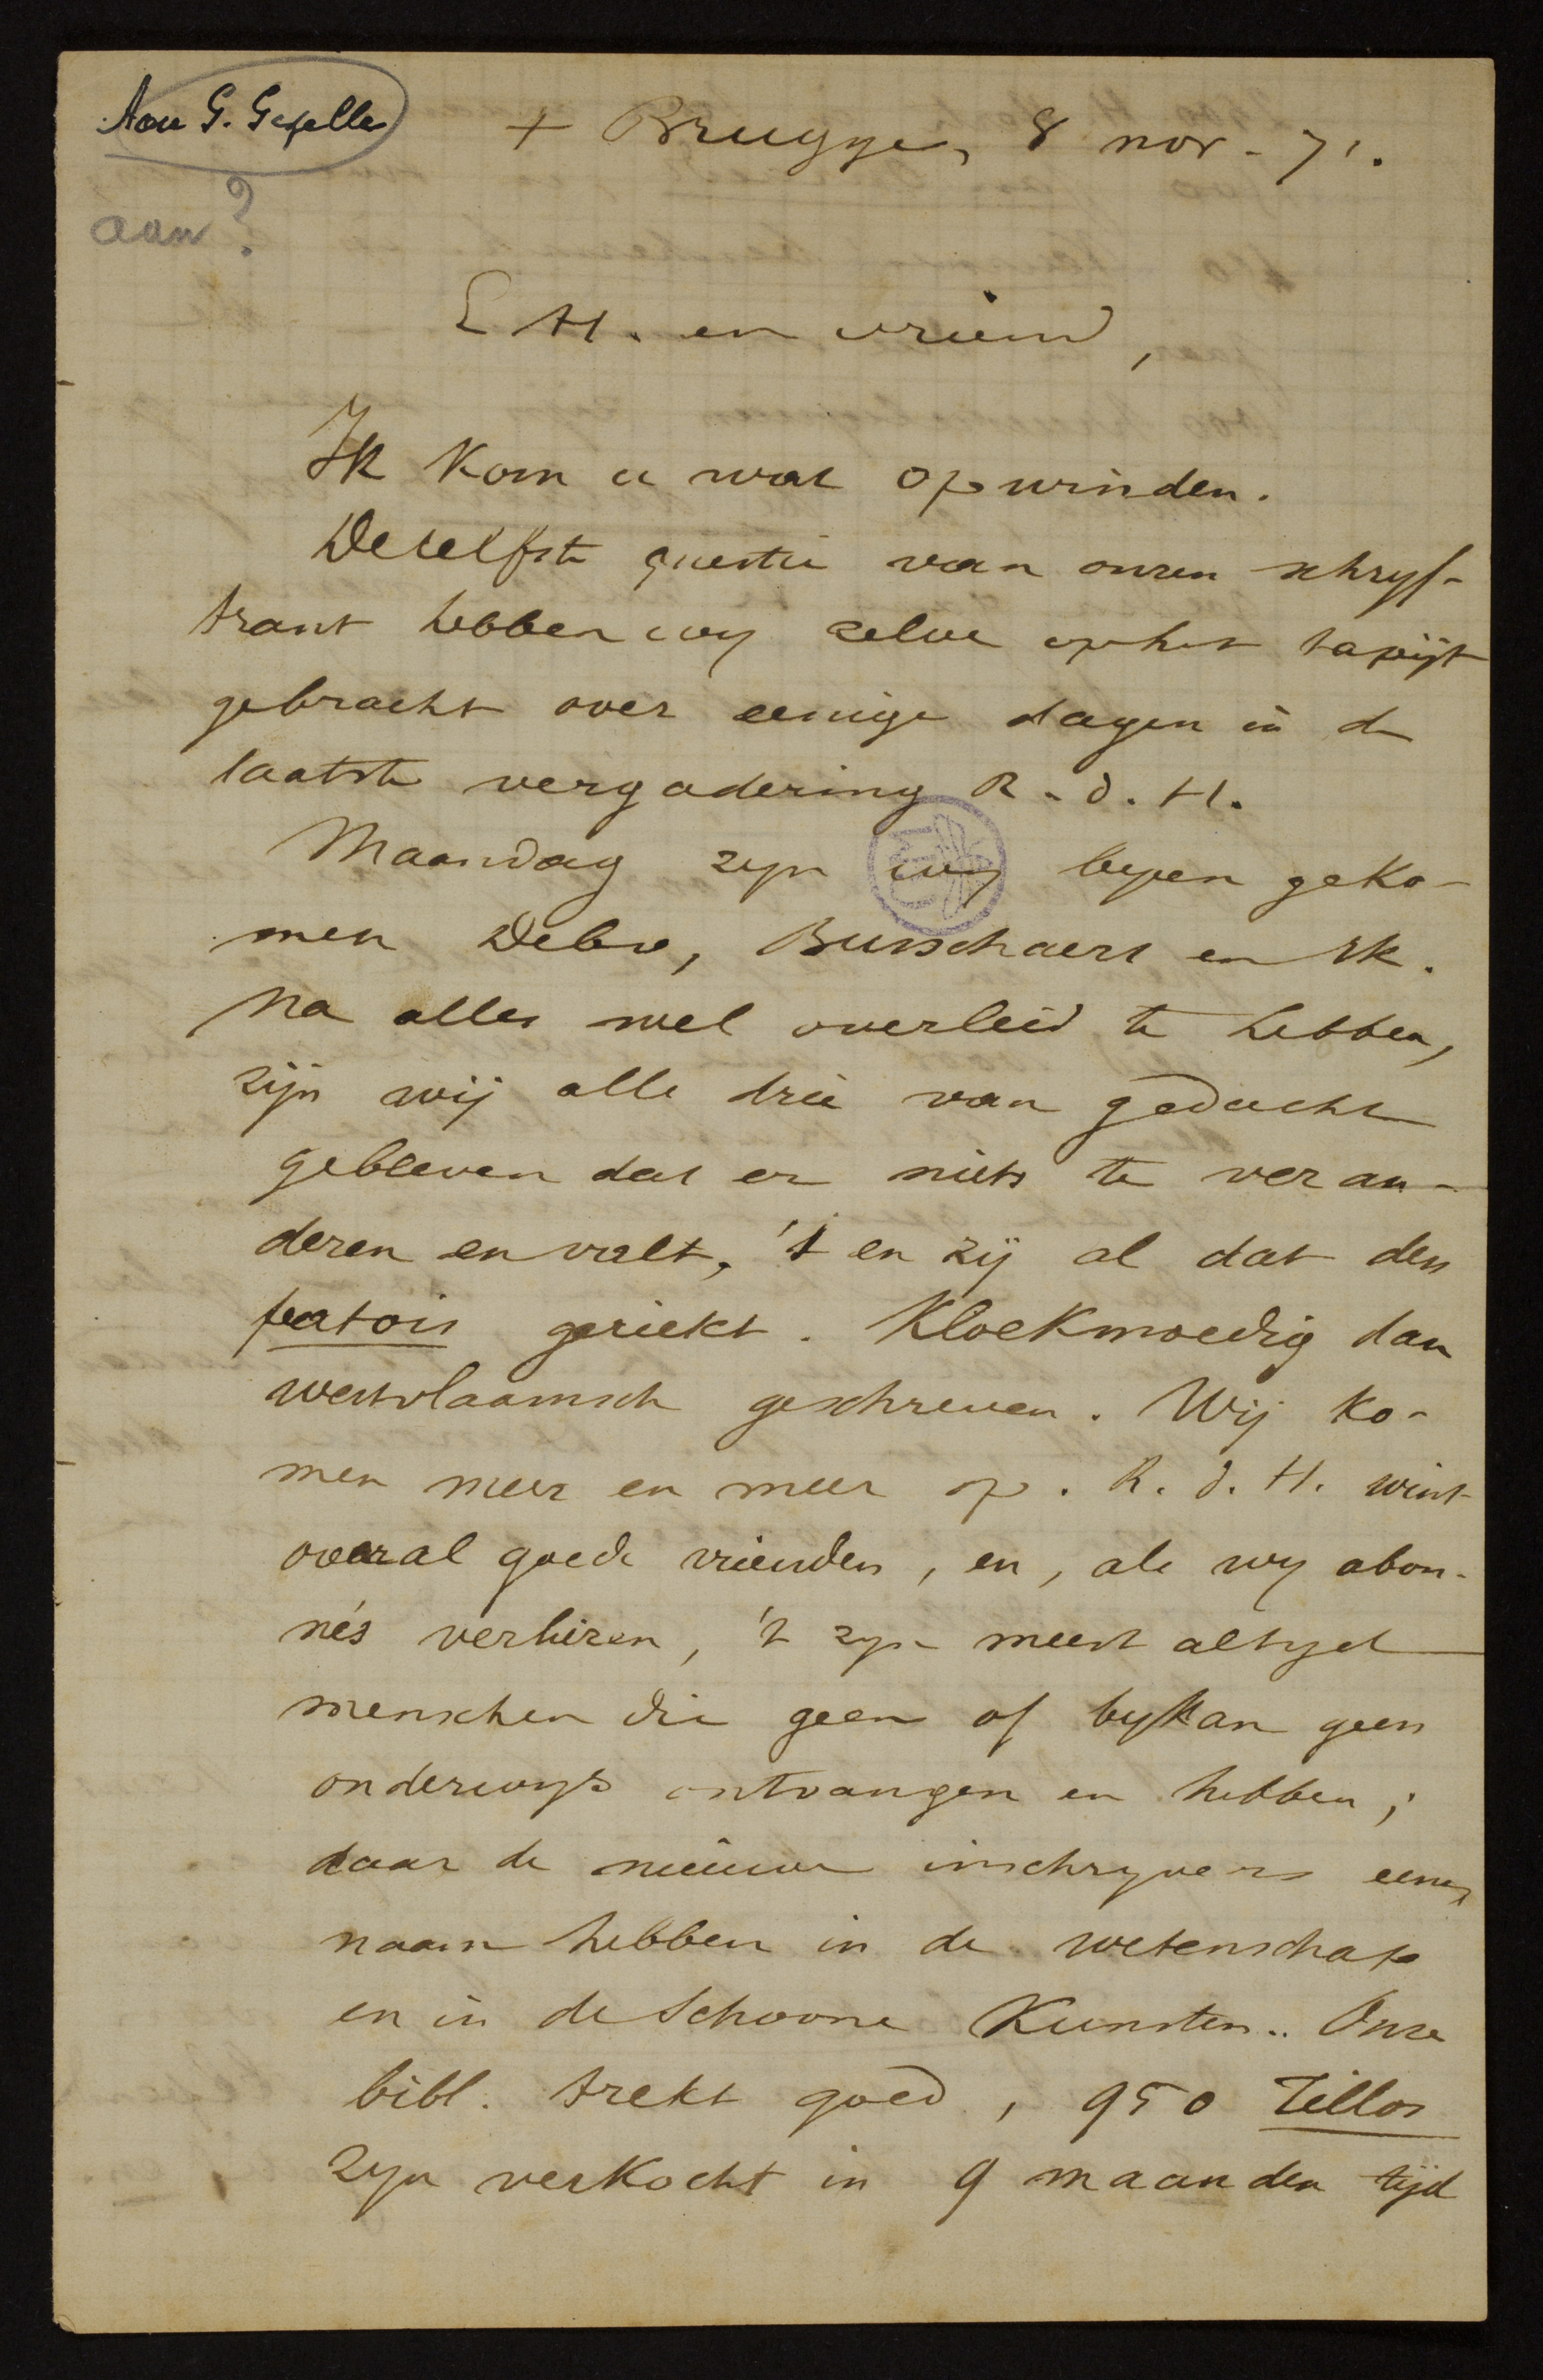 Aan G. Gezelle
aan?
+ Brugge, 8 nov. 71.
E H. en vriend,
Ik kom u wat opwinden.
Deselfste questie van onzen schryf-
trant hebben wy zelve op het tapijt
gebracht over eenige dagen in de
laatste vergadering R. d. H.
Maandag zyn wy byeen geko-
men Debo, Busschaert en Ik.
Na alles wel overleid te hebben,
zijn wij alle drie van gedacht
gebleven dat er niets te veran-
deren en valt, 't en zij al dat den
patois geriekt. Kloekmoedig dan
westvlaamsch geschreven. Wij ko-
men meer en meer op. R. d. H. wint
overal goede vrienden, en, als wy abon-
nés verliezen, 't zyn meest altyd
menschen die geen of bykan geen
onderwys ontvangen en hebben;
daar de nieuwe inschryvers eenen
naam hebben in de wetenschap
en in de Schoone Kunsten.. Onze
bibl. trekt goed, 950 Tillos
zyn verkocht in 9 maanden tijd